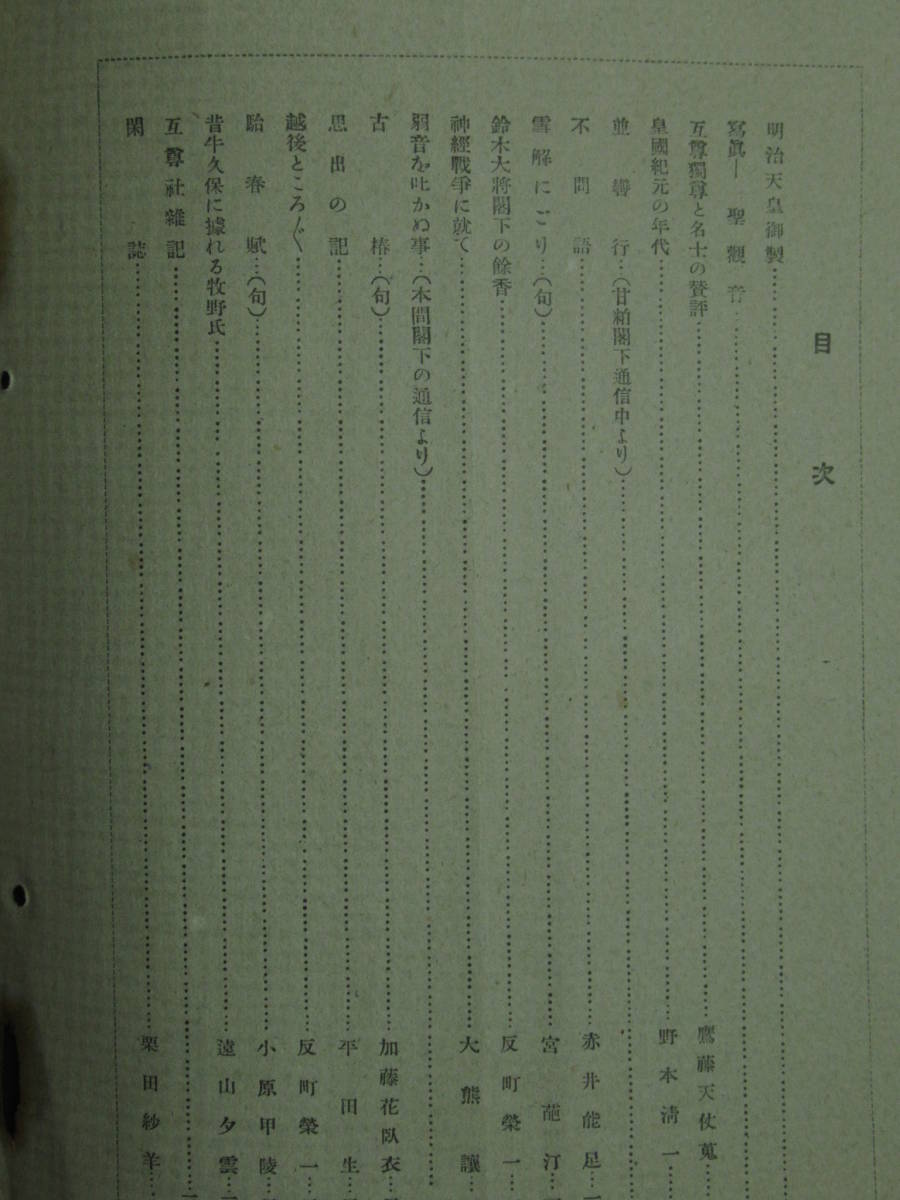 目次
明治天皇御製
寫眞― 聖觀音
互尊獨尊と名士の賛評 鷹藤天仗蒐
皇國紀元の年代 野本淸一
並響行…(甘粕閣下通信中より)
不問語 赤井能足
雪解にごり…(句) 宮葩汀
鈴木大將閣下の餘香 反町榮一
神經戰爭に就て 大熊讓
弱音を吐かぬ事…(本間閣下の通信より)
古椿…(句) 加藤花臥衣
思出の記 平田生
越後ところ〴〵 反町榮一
貽春賦…(句) 小原甲陵
昔牛久保に據れる牧野氏 遠山夕雲
互尊社雜記
閑誌 栗田紗羊